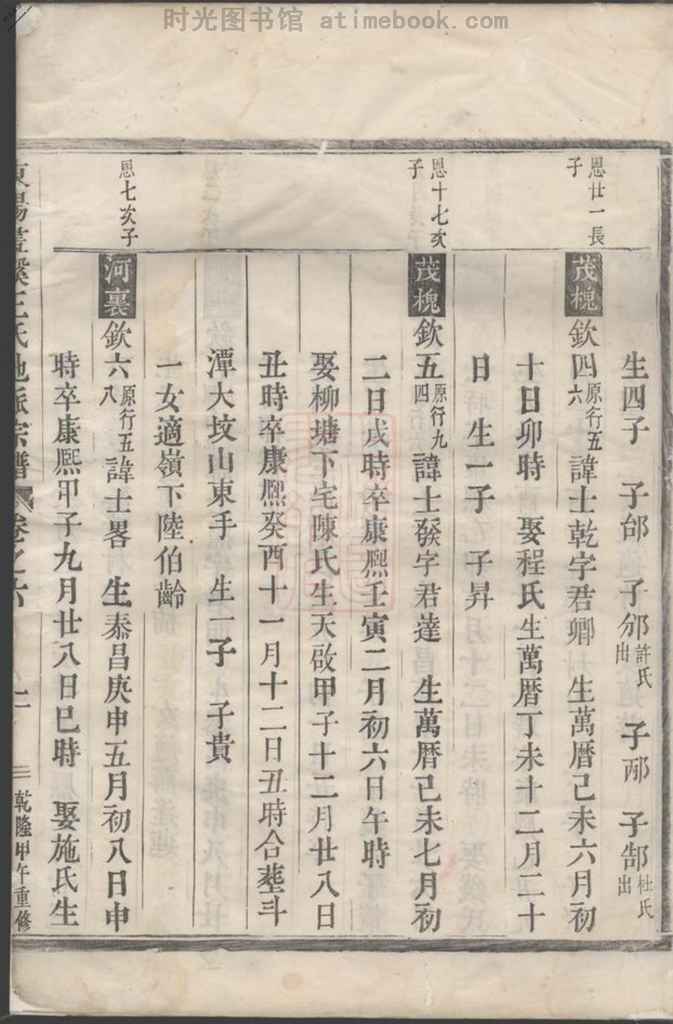 时光图书馆 atimebook.com
生四子 子邰 子邠許氏出 子邴 子郜杜氏出
恩廿一長子
茂槐 欽四原行五六 諱士乾字君卿 生萬曆己未六月初
十日卯時 娶程氏生萬曆丁未十二月二十
日 生一子 子昇
恩十七次子
茂槐 欽五原行九四 諱士發字君達 生萬曆己未七月初
二日戌時卒康熙壬寅二月初六日午時
娶柳塘下宅陳氏生天啟甲子十二月廿八日
丑時卒康熙癸酉十一月十二日丑時合塟斗
潭大坟山東手 生一子 子貴
一女適嶺下陸伯齡
恩七次子
河裏 欽六原行五八 諱士畧 生泰昌庚申五月初八日申
時卒康熙甲子九月廿八日巳時 娶施氏生
東陽 王氏 派宗譜 卷之六 乾隆甲午重修